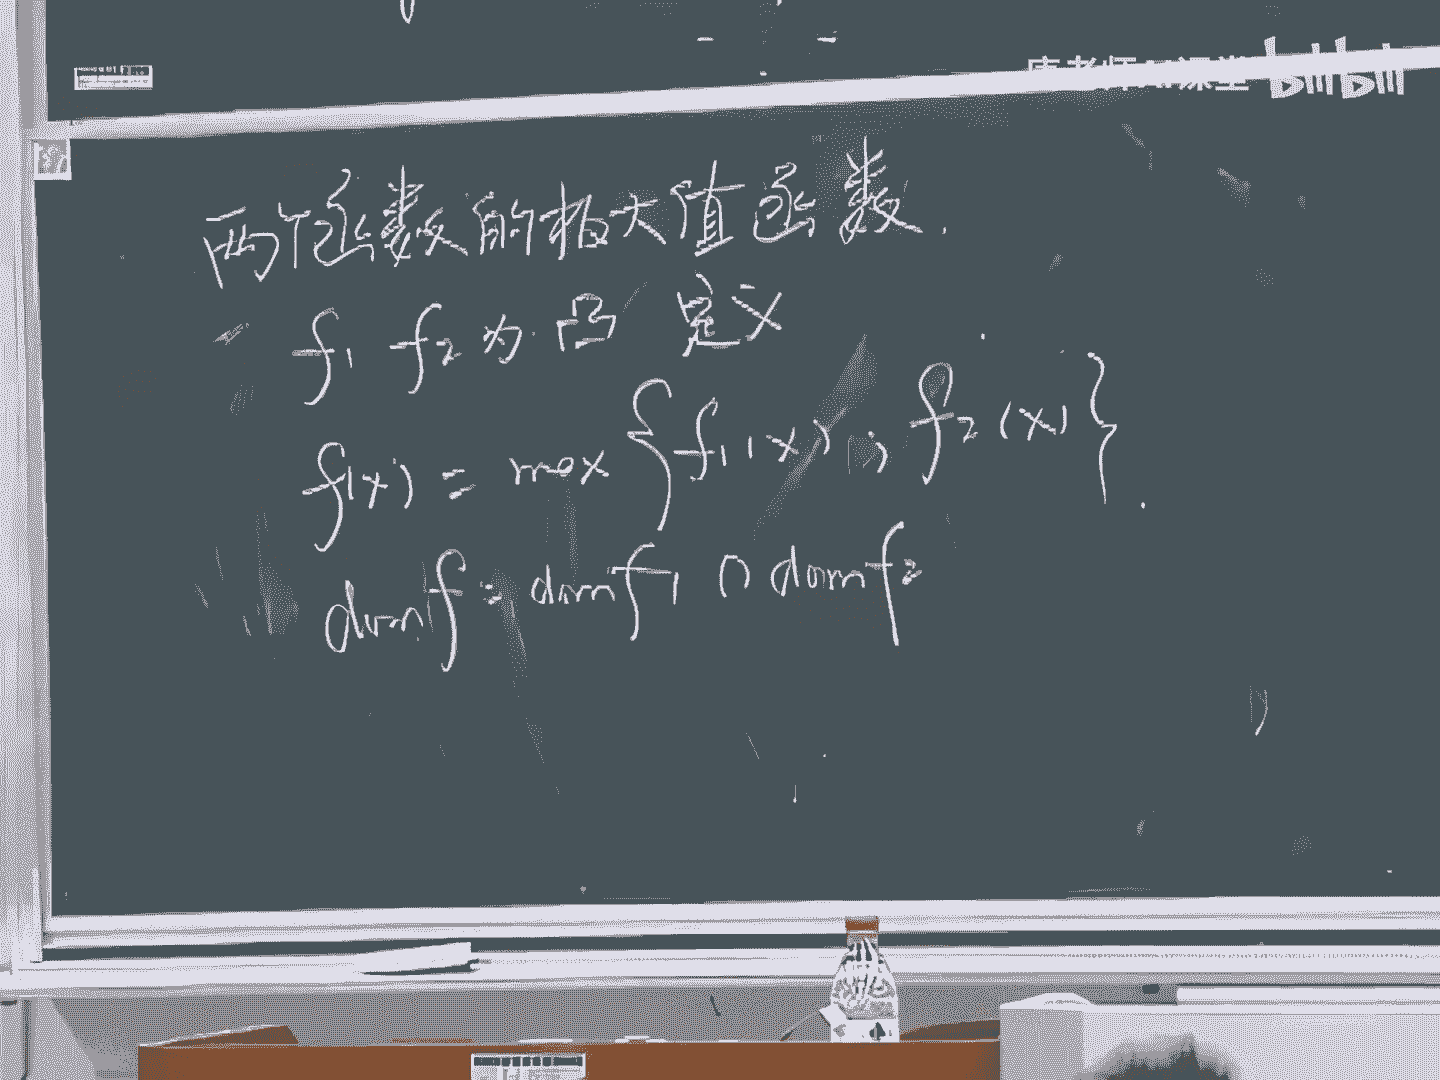 bilibili
两个函数的极大值函数.
f₁ f₂为凸 定义
f(x) = max {f₁(x), f₂(x)}.
dom f = dom f₁ ∩ dom f₂